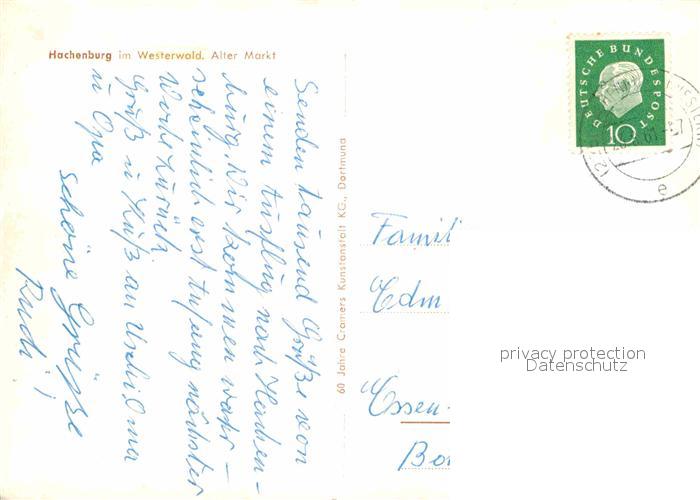 Hachenburg im Westerwald. Alter Markt
Senden tausend Grüße von
einem Ausflug nach Hachen-
burg. Wir kommen wahr-
scheinlich erst Anfang nächster
Woche zurück
Gruß u Kuß an Uschi Oma
u Opa
schöne Grüße
Rudi!
60 Jahre Cramers Kunstanstalt KG., Dortmund
DEUTSCHE BUNDESPOST
10
e
Famil
Edm
Essen-
Bo
privacy protection
Datenschutz